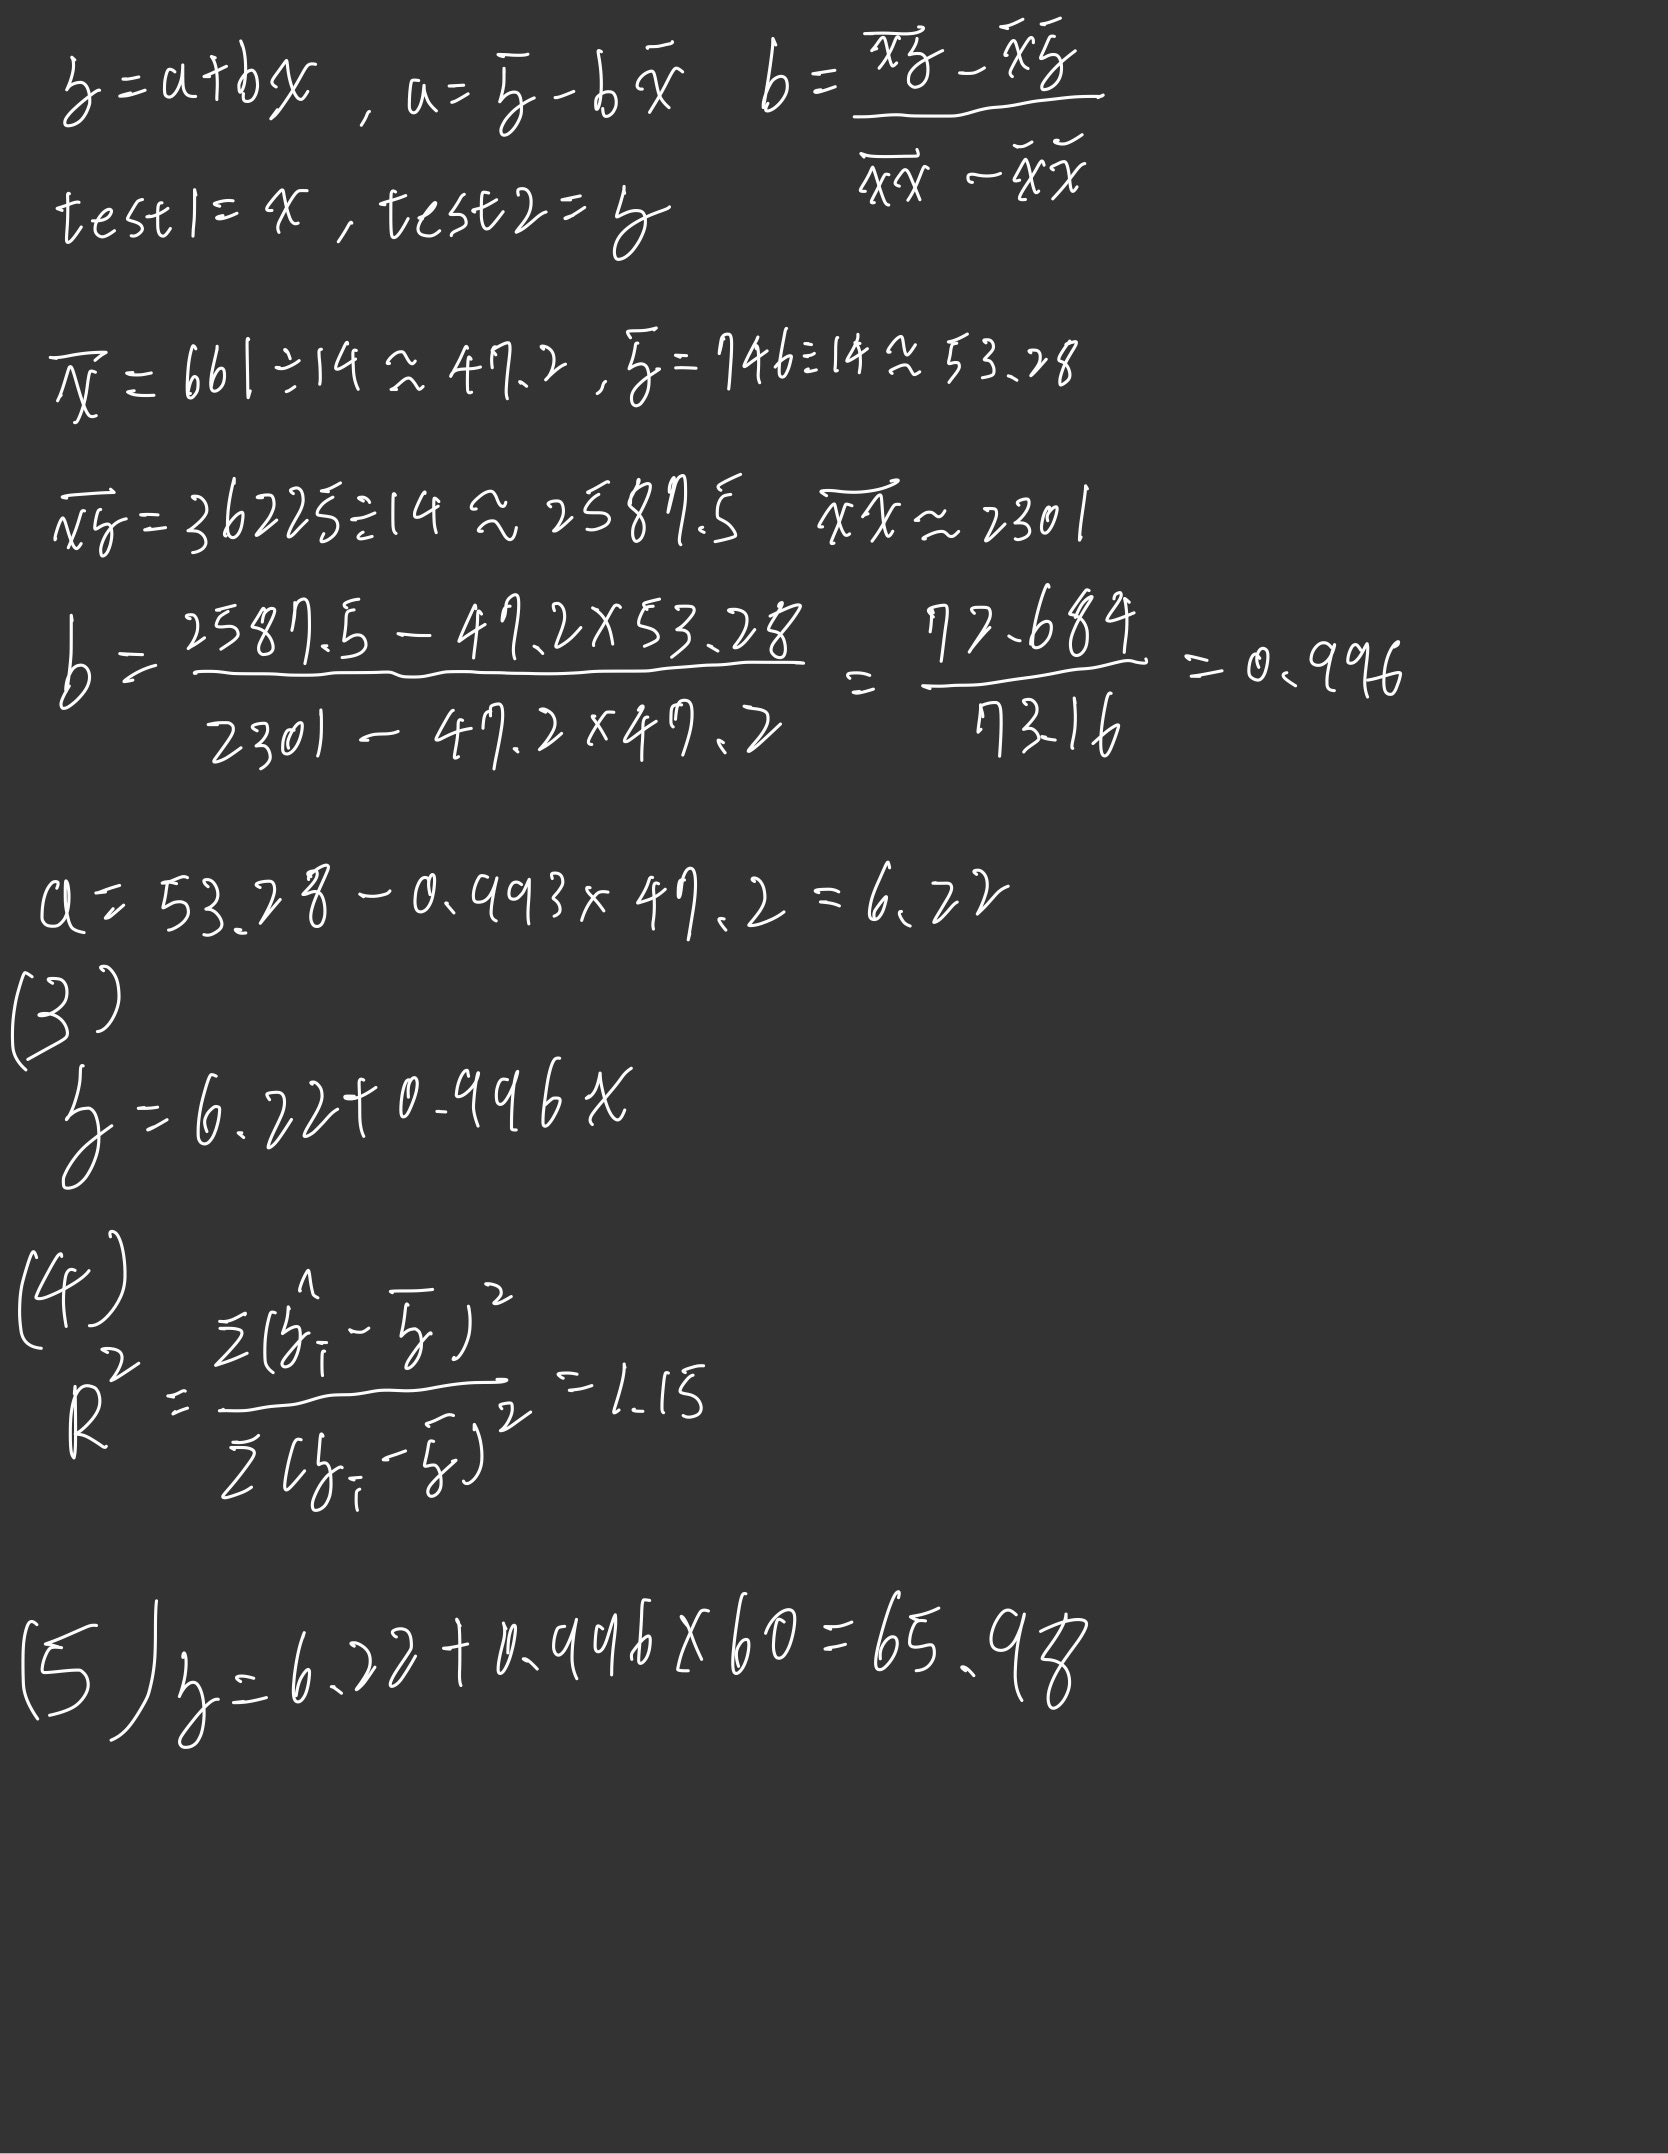 y = a+bx , a = ȳ - b x̄   b = (x̄ȳ̅ - x̄ȳ) / (x̅x̅ - x̄x̄)
test1 = x , test2 = y
x̄ = 661÷14 ≈ 47.2 , ȳ = 746÷14 ≈ 53.28
x̅y̅ = 36225÷14 ≈ 2587.5   x̅x̅ ≈ 2301
b = (2587.5 - 47.2×53.28) / (2301 - 47.2×47.2) = 72.684 / 73.16 = 0.996
a = 53.28 - 0.993×47.2 = 6.22
(3)
y = 6.22+0.996x
(4)
R² = Σ(ŷi - ȳ)² / Σ(yi - ȳ)² = 1.15
(5) y = 6.22+0.996×60 = 65.98